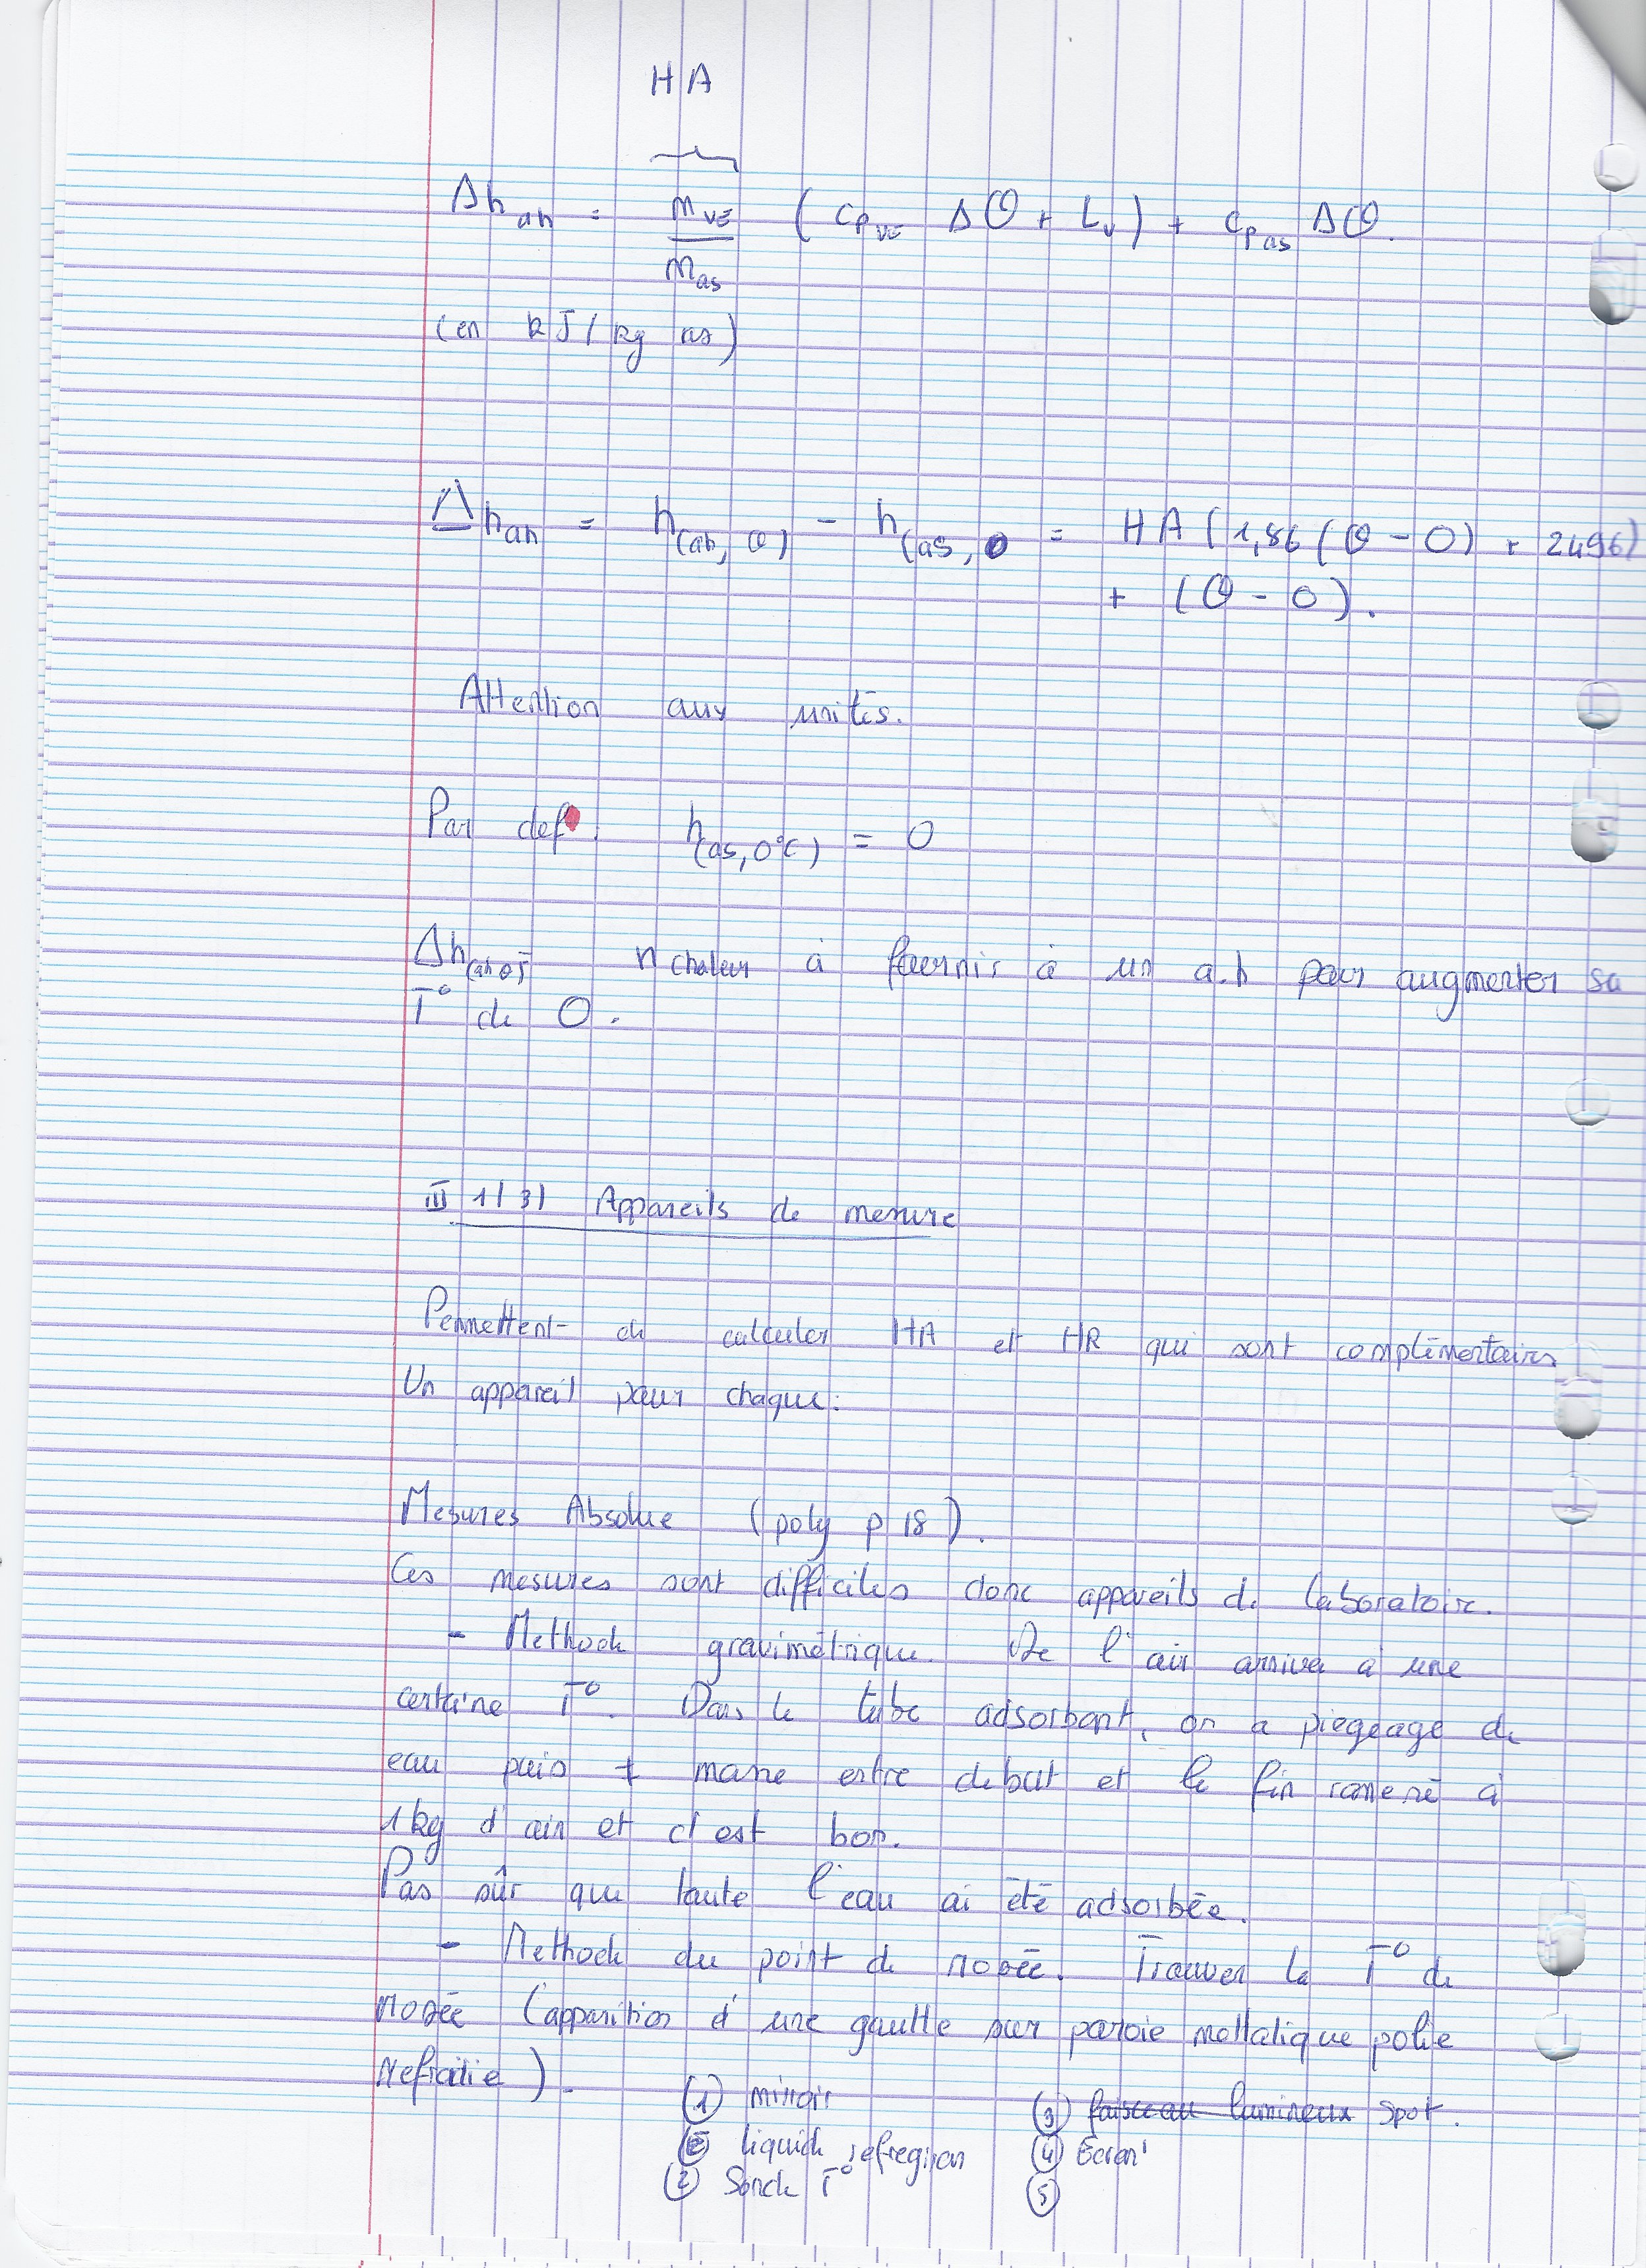 HA
Δh ah = m VE / m as ( Cp VE Δθ + Lv ) + Cp as Δθ.
(en kJ/kg as)
Δh ah = h(ah, θ) - h(as, 0 = HA (1,86 (θ - 0) + 2496)
+ (θ - 0).
Attention aux unités.
Par def. h(as, 0°C) = 0
Δh(ah θ) chaleur à fournir à un a.h pour augmenter sa
T° de θ.
III 1/ 3) Appareils de mesure
Permettent de calculer HA et HR qui sont complémentaires
Un appareil pour chaque:
Mesures Absolue (poly p 18).
Ces mesures sont difficiles donc appareils de laboratoire.
- Methode gravimétrique. De l'air arrive à une
certaine T°. Dans le tube adsorbant, on a piegeage de
eau puis ≠ masse entre debut et le fin ramené à
1 kg d'air et c'est bon.
Pas sûr que toute l'eau ai été adsorbée.
- Methode du point de rosée. Trouver la T° de
rosée (apparition d'une goutte sur paroie mettalique polie
refroidie).
① miroir ③ faisceau lumineux spot.
liquide refregiran ④ Ecran
② Sonde T° ⑤